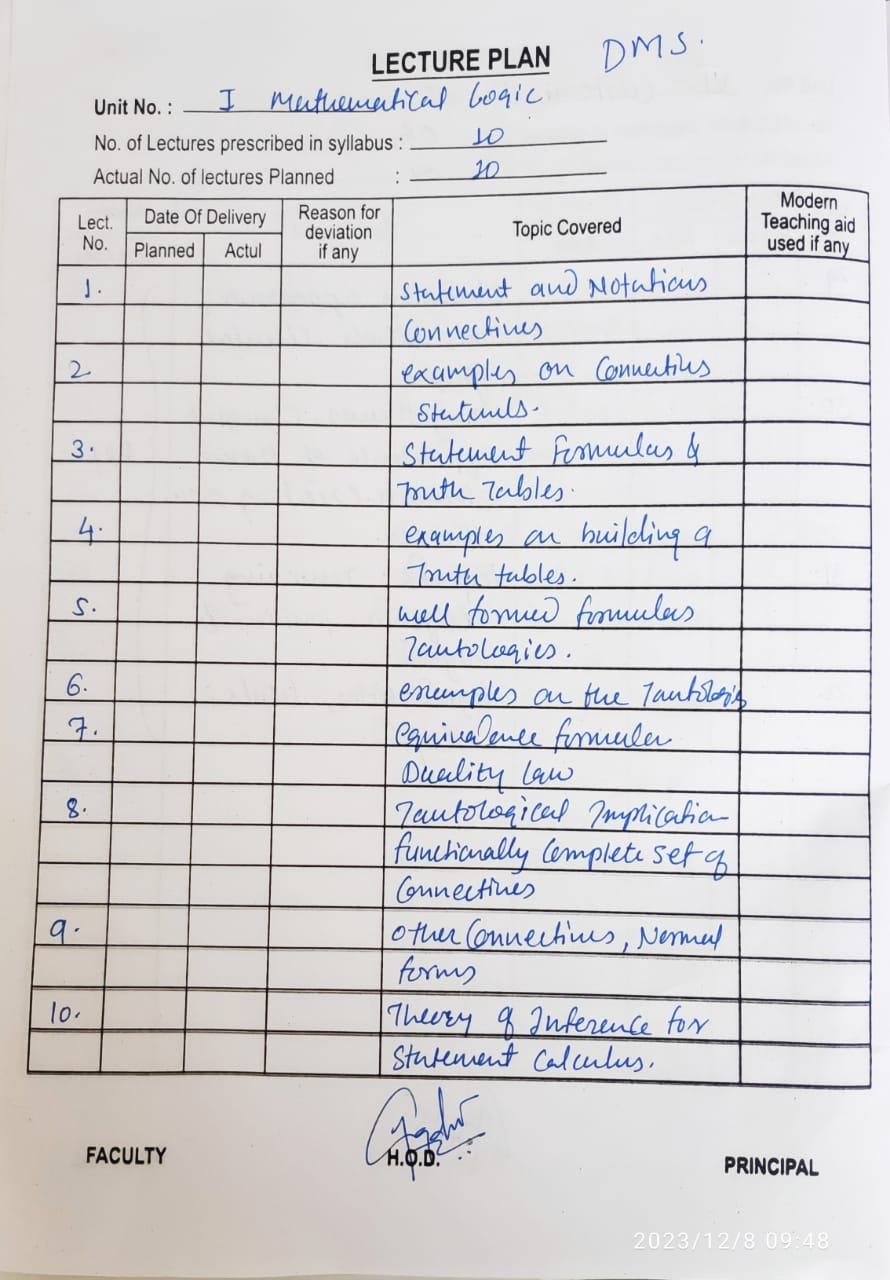 LECTURE PLAN DMS.
Unit No. : I Mathematical Logic
No. of Lectures prescribed in syllabus : 10
Actual No. of lectures Planned : 10
Lect. No. Date Of Delivery Planned Actul Reason for deviation if any Topic Covered Modern Teaching aid used if any
1. Statement and Notations
Connectives
2 examples on Connectives
Statements.
3. Statement Formulas &
Truth Tables.
4. examples on building a
Truth tables.
5. well formed formulas
Tautologies.
6. examples on the Tautologies
7. Equivalence formulas
Duality Law
8. Tautological Implication
functionally Complete set of
Connectives
9. other Connectives, Normal
forms
10. Theory of Inference for
Statement Calculus.
FACULTY H.O.D. PRINCIPAL
2023/12/8 09:48